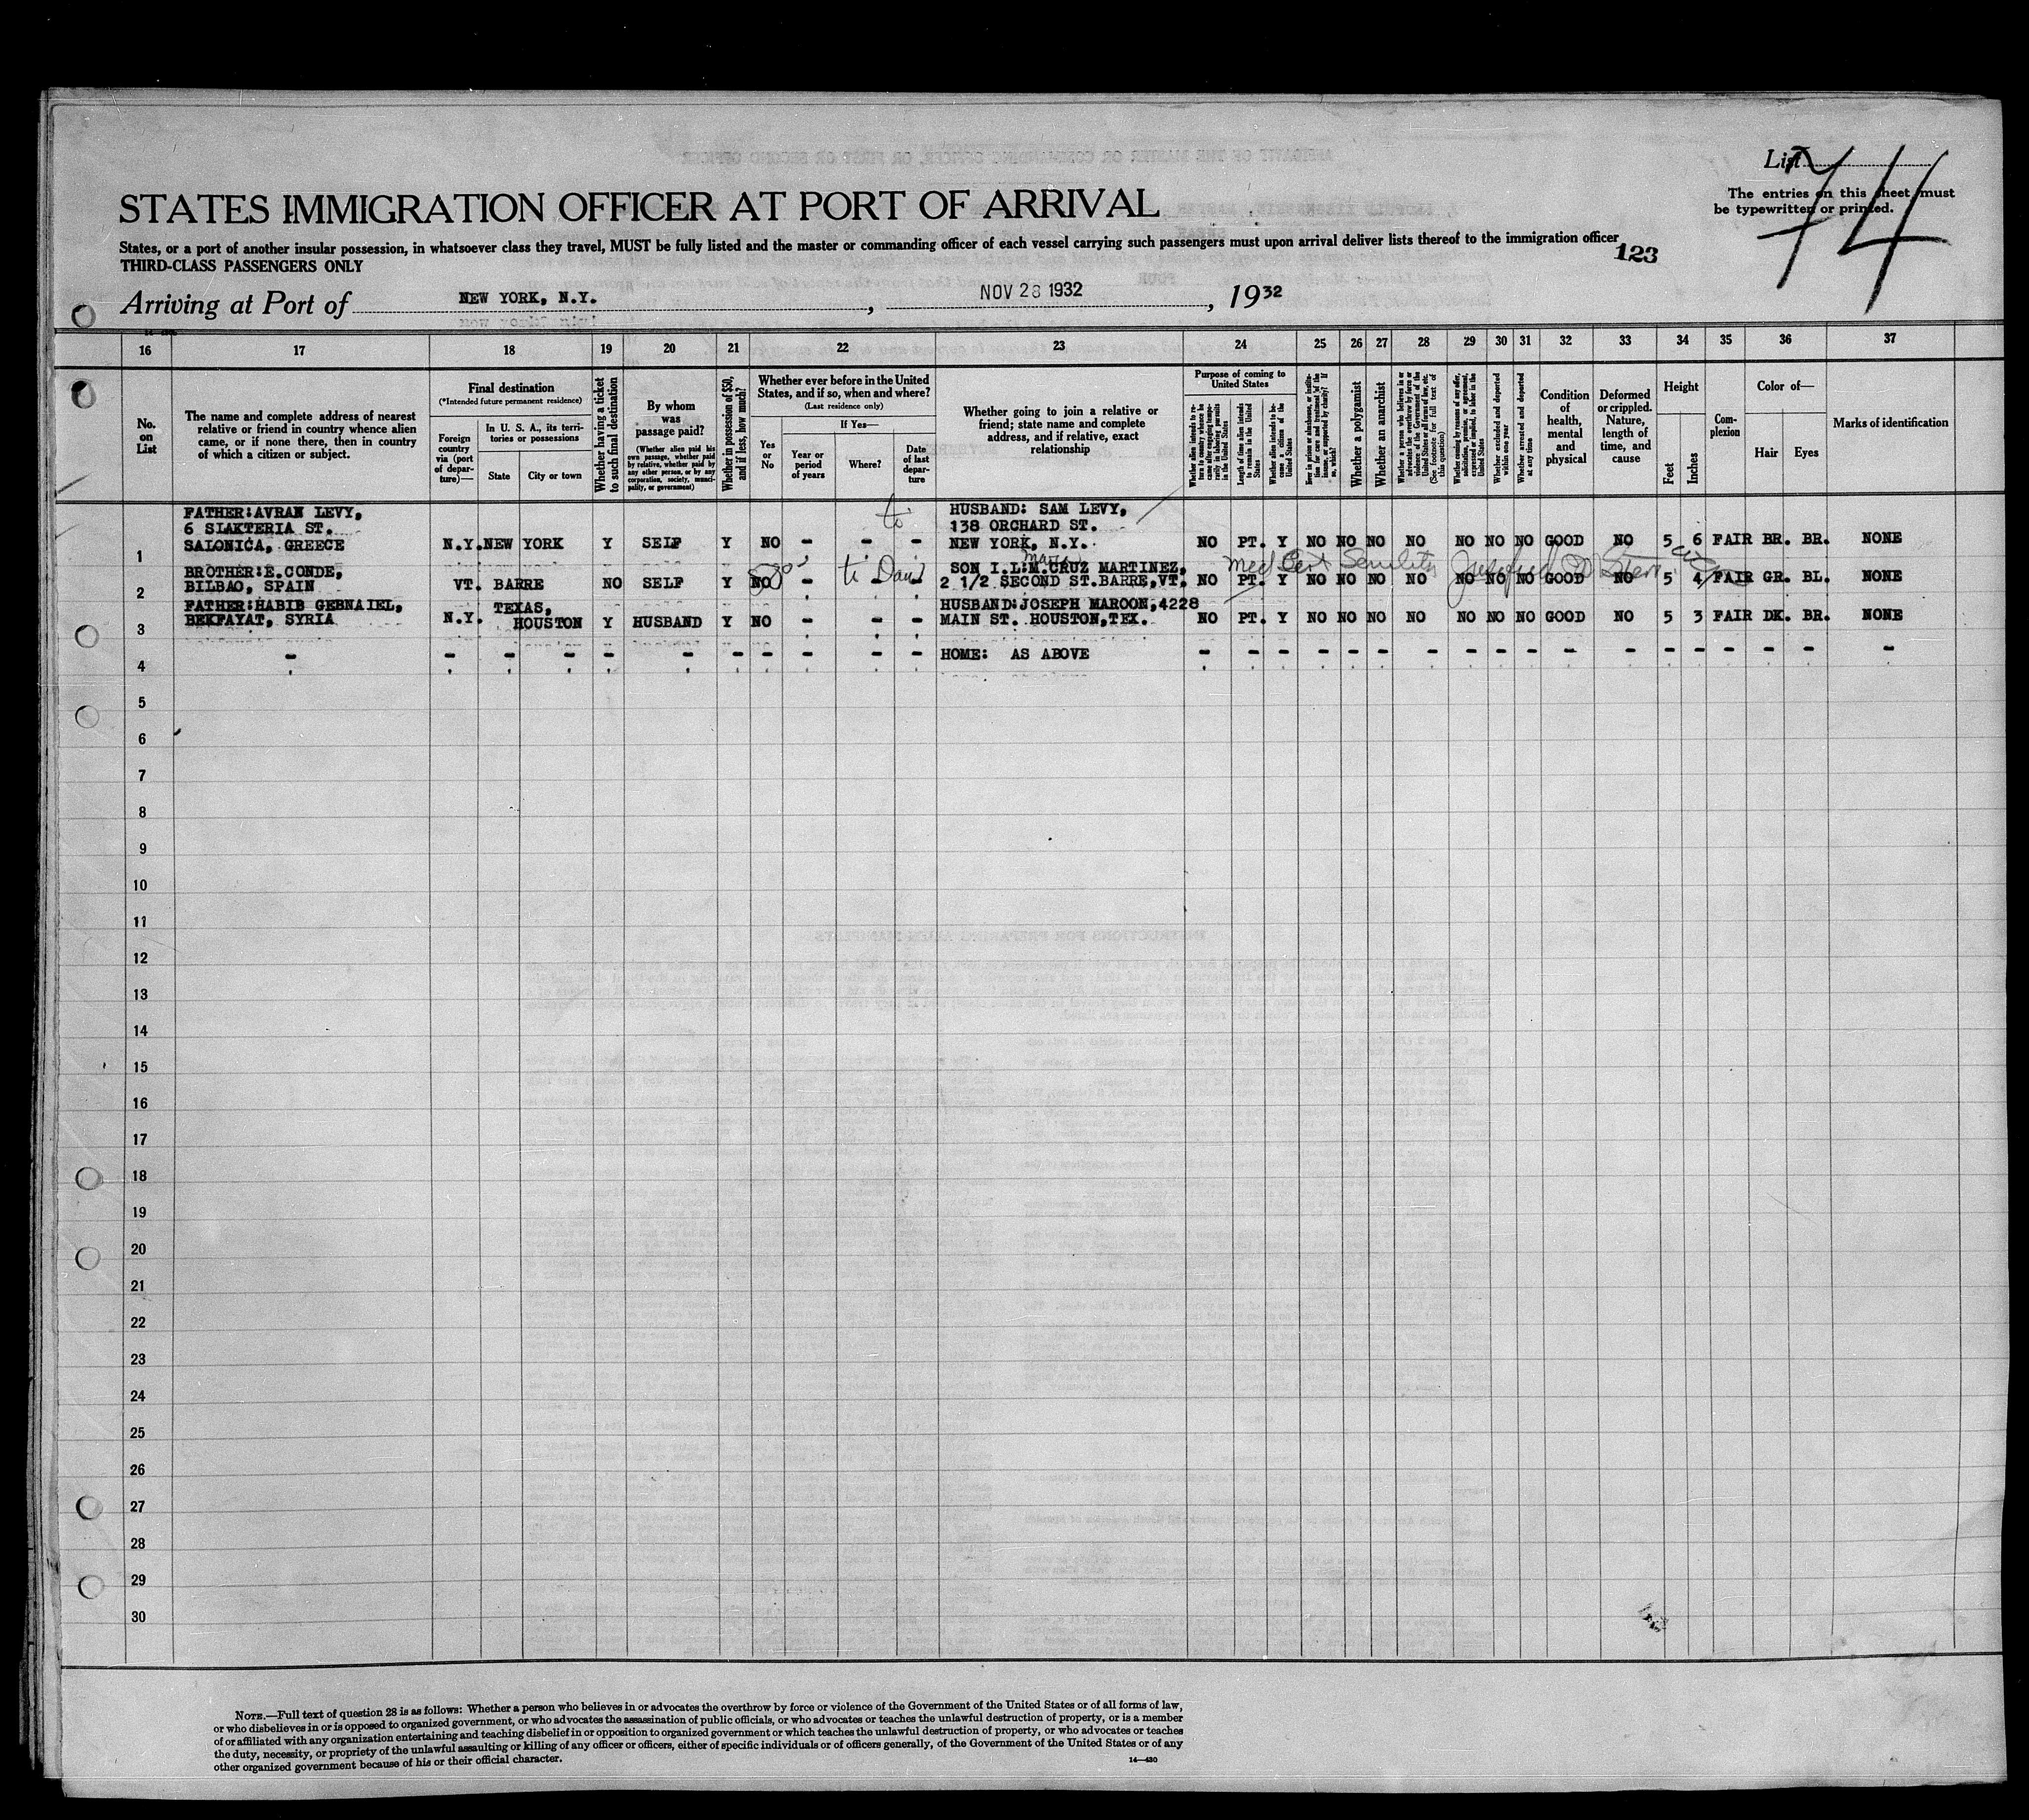 List 74
The entries on this sheet must
be typewritten or printed.
STATES IMMIGRATION OFFICER AT PORT OF ARRIVAL
States, or a port of another insular possession, in whatsoever class they travel, MUST be fully listed and the master or commanding officer of each vessel carrying such passengers must upon arrival deliver lists thereof to the immigration officer
THIRD-CLASS PASSENGERS ONLY
123
Arriving at Port of NEW YORK, N.Y., NOV 28 1932, 1932
16 17 18 19 20 21 22 23 24 25 26 27 28 29 30 31 32 33 34 35 36 37
No. on List
The name and complete address of nearest
relative or friend in country whence alien
came, or if none there, then in country
of which a citizen or subject.
Final destination
(*Intended future permanent residence)
Foreign country via (port of departure)—
In U. S. A., its territories or possessions
State
City or town
Whether having a ticket to such final destination
By whom was passage paid?
(Whether alien paid his own passage, whether paid by relative, whether paid by any other person, or by any corporation, society, municipality, or government)
Whether in possession of $50, and if less, how much?
Whether ever before in the United States, and if so, when and where?
(Last residence only)
Yes or No
If Yes—
Year or period of years
Where?
Date of last departure
Whether going to join a relative or
friend; state name and complete
address, and if relative, exact
relationship
Purpose of coming to United States
Whether alien intends to return to country whence he came after engaging temporarily in laboring pursuits in the United States
Length of time alien intends to remain in the United States
Whether alien intends to become a citizen of the United States
Ever in prison or almshouse, or institution for care and treatment of the insane, or supported by charity? If so, which?
Whether a polygamist
Whether an anarchist
Whether a person who believes in or advocates the overthrow by force or violence of the Government of the United States or all forms of law, etc. (See footnote for full text of this question)
Whether coming by reason of any offer, solicitation, promise, or agreement, expressed or implied, to labor in the United States
Whether excluded and deported within one year
Whether arrested and deported at any time
Condition of health, mental and physical
Deformed or crippled. Nature, length of time, and cause
Height
Feet
Inches
Complexion
Color of—
Hair
Eyes
Marks of identification
FATHER:AVRAN LEVY, HUSBAND: SAM LEVY,
6 SLAKTERIA ST. 138 ORCHARD ST.
1 SALONICA, GREECE N.Y. NEW YORK Y SELF Y NO - - - NEW YORK, N.Y. NO PT. Y NO NO NO NO NO NO NO GOOD NO 5 6 FAIR BR. BR. NONE
BROTHER:E.CONDE, SON I.L:M.CRUZ MARTINEZ, Med Cert Senility
2 BILBAO, SPAIN VT. BARRE NO SELF Y NO - - - 2 1/2 SECOND ST.BARRE,VT. NO PT. Y NO NO NO NO NO NO NO GOOD NO 5 4 FAIR GR. BL. NONE
FATHER:HABIB GEBNAIEL, TEXAS, HUSBAND:JOSEPH MAROON,4228
3 BEKFAYAT, SYRIA N.Y. HOUSTON Y HUSBAND Y NO - - - MAIN ST. HOUSTON,TEX. NO PT. Y NO NO NO NO NO NO NO GOOD NO 5 3 FAIR DK. BR. NONE
4 - - - - - - - - - - - HOME: AS ABOVE - - - - - - - - - - - - - - - - - -
5
6
7
8
9
10
11
12
13
14
15
16
17
18
19
20
21
22
23
24
25
26
27
28
29
30
NOTE.—Full text of question 28 is as follows: Whether a person who believes in or advocates the overthrow by force or violence of the Government of the United States or of all forms of law,
or who disbelieves in or is opposed to organized government, or who advocates the assassination of public officials, or who advocates or teaches the unlawful destruction of property, or is a member
of or affiliated with any organization entertaining and teaching disbelief in or opposition to organized government or which teaches the unlawful destruction of property, or who advocates or teaches
the duty, necessity, or propriety of the unlawful assaulting or killing of any officer or officers, either of specific individuals or of officers generally, of the Government of the United States or of any
other organized government because of his or their official character.
14—430